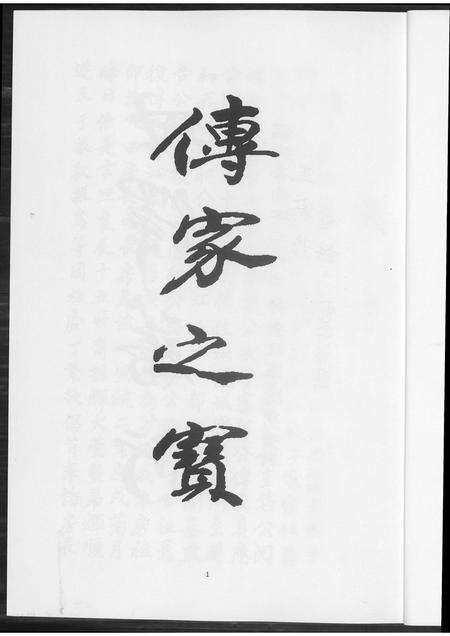 傳家之寶
1